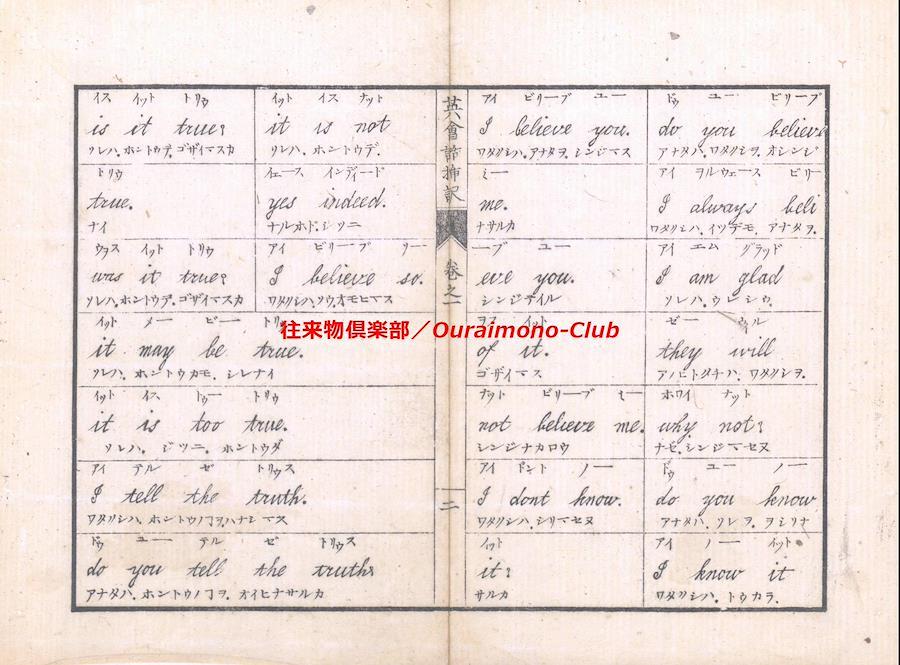 イス イット トリウ イット イス ナット
is it true? it is not
ソレハ、ホントウデ、ゴザイマスカ ソレハ、ホントウデ、
トリウ イエース インディード
true. yes indeed.
ナイ ナルホド、ジツニ
ウヲス イット トリウ アイ ビリーブ
was it true? I believe so.
ソレハ、ホントウデ、ゴザイマスカ ワタクシハ、ソウ、オモヒマス
イット メー ビー
it may be true.
ソレハ、ホントウカモ、シレナイ
イット イス トゥー トリウ
it is too true.
ソレハ、ジツニ、ホントウダ
アイ テル ゼ トリウス
I tell the truth.
ワタクシハ、ホントウノヿヲ、ハナシマス
ドゥ ユー テル ゼ トリウス
do you tell the truth?
アナタハ、ホントウノヿヲ、オイヒナサルカ
英會話挿訳
卷之一
二
アイ ビリーブ ユー ドゥ ユー ビリーブ
I believe you. do you believe
ワタクシハ、アナタヲ、シンジマス アナタハ、ワタクシヲ、オシンジ
ミー アイ ヲルウェース ビリー
me. I always beli
ナサルカ ワタクシハ、イツデモ、アナタヲ、
ーブ ユー アイ エム グラッド
eve you. I am glad
シンジテイル ソレハ、ウレシウ、
ヲス イット ゼー ウル
of it. they will
ゴザイマス アノヒトタチハ、ワタクシヲ、
ナット ビリーブ ミー ホワイ ナット
not believe me. why not?
シンジナカロウ ナゼ、シンジマセヌ
アイ ドント ノー ドゥ ユー ノー
I dont know. do you know
ワタクシハ、シリマセヌ アナタハ、ソレヲ、ヲシリナ
イット アイ ノー イット
it? I know it
サルカ ワタクシハ、トウカラ、
往来物倶楽部／Ouraimono-Club